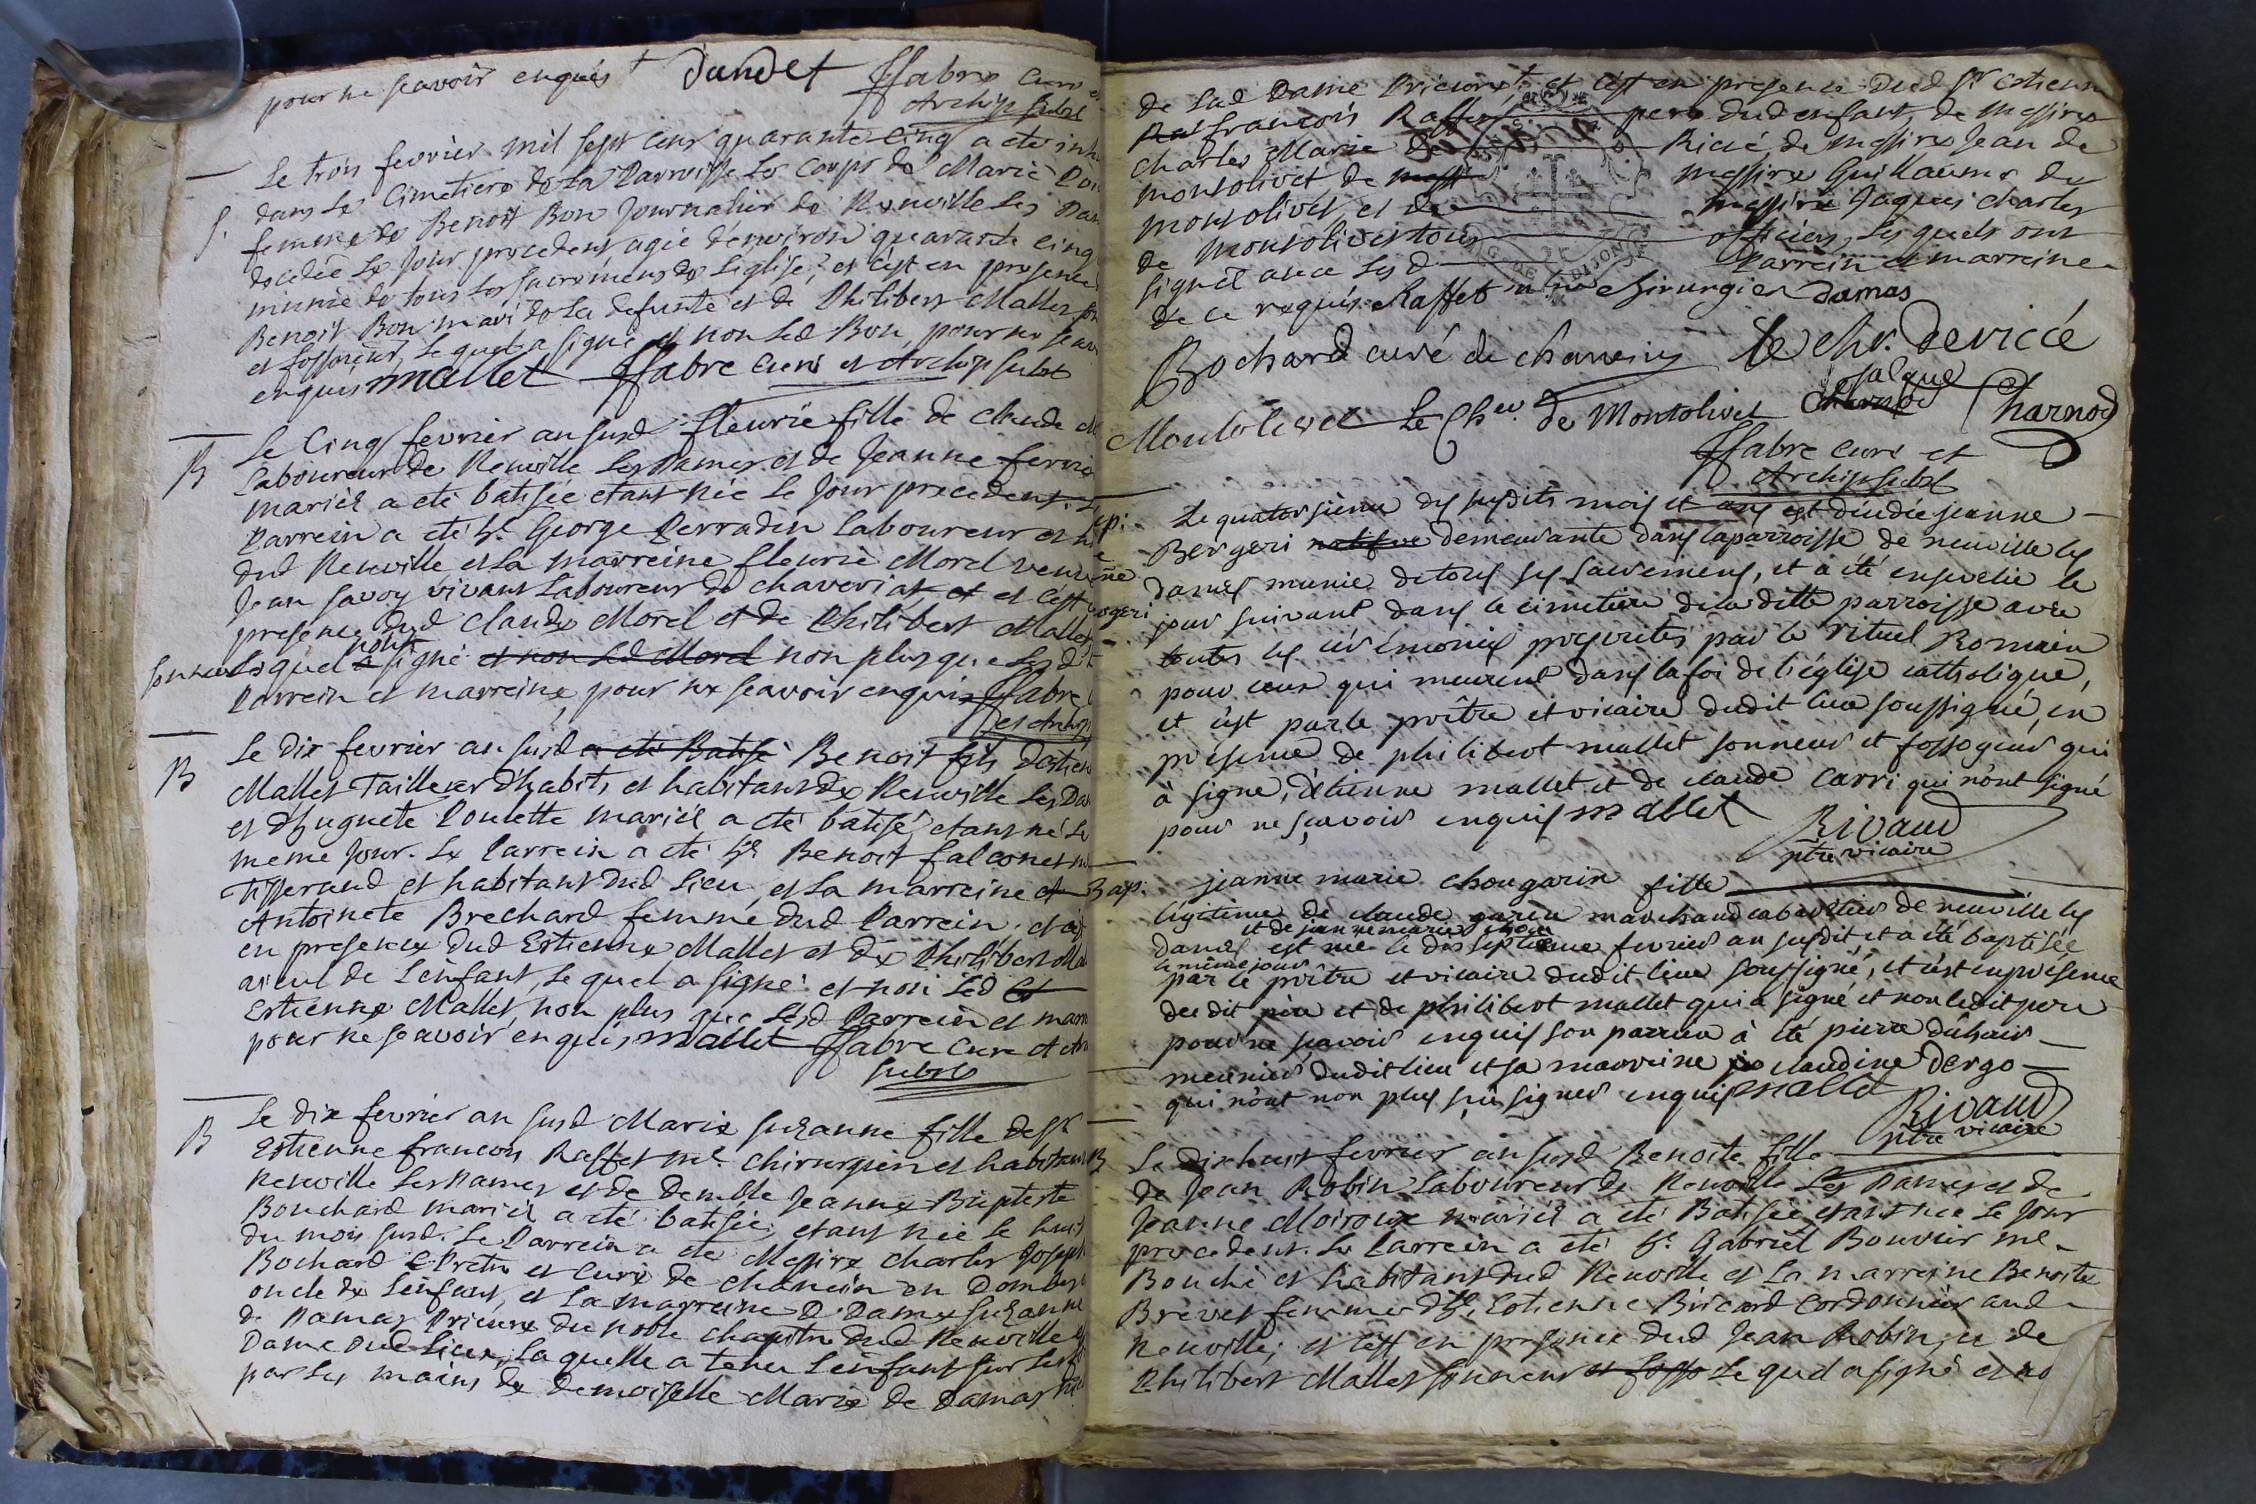 pour ne scavoir enquis dandet ffabre curé
Archip subst
Le trois fevrier mil sept cens quarante cinq a eté inh
dans Le Cimetiere de La Parroisse Le Corps de Marie
S. femme de Benoit Bon Journalier de Neuville Les Dam
decedée Le Jour precedent agée d'environ quarante cinq
munie de tous Les sacremens de L'eglise, et c'est en presence
Benoit Bon mari de La defunte et de Philibert Mallet
et fossoieur, Lequel a signé et non Led Bon, pour ne scav
enquis mallet ffabre curé et Archip subst
Le Cinq fevrier an susd. fleurie fille de Claude
B Laboureur de Neuville Les Dames et de Jeanne ferrie
mariés a eté batisée etant née Le Jour precedent. L
Parrein a eté hê. George Perradin Laboureur
dud Neuville et La marreine fleurie Morel veuve
Jean Savoy vivant Laboureur de chaveriat et et c'est
presence dud Claude Morel et de Philibert Mallet
sonneur Lequel a signé et non Led Morel non plus que Lesd
Parrein et marreine, pour ne scavoir enquis ffabre
et Archip
Le dix fevrier an susd a eté Batisé Benoit fils d'estien
B Mallet Tailleur d'habits et habitant de Neuville Les Da
et d'huguete Poulette mariés a eté batisé, etant né Le
meme Jour. Le Parrein a eté hê Benoit falconet
Tisserand et habitant dud Lieu et La marreine et
Antoinete Brechard femme dud Parrein
en presence dud Estienne Mallet et de Philibert Ma
aieul de L'enfant, Le quel a signé et non Led et
Estienne Mallet, non plus que Lesd Parrein et marr
pour ne scavoir enquis mallet ffabre curé et Arc
subst
Le dix fevrier an susd Marie suzanne fille de sr
B Estienne francois Raffet me. chirurgien et habitant
Neuville Les Dames et de demlle Jeanne Baptiste
Bouchard mariés a eté batisée, etant née le huit
du mois susd. Le Parrein a eté Messire charles Joseph
Bochard Pretre et curé de chanein en Dombes
oncle de L'enfant, et La marreine D. Dame suzanne
de Damas Prieure du noble chapitre dud Neuville
Dame dud Lieu, Laquelle a tenu L'enfant sur Les f
par Les mains de demoiselle Marie de Damas
de Lad Dame Prieure, et c'est en presence dud Sr estienne
Raf francois Raffet pere dud enfant, de messire
charles Marie de Ricié, de messire Jean de
montolivet de mess messire Guillaume de
montolivet, et de messire Jaques charles
de montolivet tous officiers, Lesquels ont
signé avec Lesd Parrein et marreine
de ce requis Raffet me chirurgien damas
Bochard curé de chanein le chr. de ricié
Montolivet Le Chev. de Montolivet Charnod jalque Charnod
ffabre curé et
Archip subst
Le quatorsieme des susdits mois et ans est décédée jeanne
Bergeri native demeurante dans la parroisse de neuville les
dames munie de tous ses sacremens, et a été ensevelie le
jour suivant dans le cimetiere de la ditte parroisse avec
toutes les cérémonies prescrites par le rituel Romain
pour ceux qui meurent dans la foi de l'église catholique,
et c'est par le prêtre et vicaire dudit lieu soussigné, en
présence de philibert mallet sonneur et fossoyeur qui
à signé, d'étienne mallet et de claude carri qui n'ont signé
pour ne sçavoir enquis mallet Rivaud
ptre vicaire
Bap. jeanne marie chougarin fille
légitime de claude garin marchand cabaretier de neuville les
et de jeanne marie
dames est née le dix septieme fevrier an susdit et a été baptisée
le même jour
par le prêtre et vicaire dudit lieu soussigné, et c'est en présence
dudit père et de philibert mallet qui a signé et non ledit père
pour ne sçavoir enquis son parrein à été pierre
meunier dudit lieu et sa marreine claudine Dergo
qui n'ont non plus sçu signer enquis mallet Rivaud
ptre vicaire
B Le dix huit fevrier an susd Benoite fille
de Jean Robin Laboureur de Neuville Les Dames et de
Jeanne Moiroux mariés a eté Batisée etant née Le Jour
precedent. Le Parrein a eté hê. Gabriel Bouvier me
Bouché et habitant dud Neuville et La marreine Benoite
Brevet femme d'hê. Estienne Bricard cordonnier aud
Neuville; et c'est en presence dud Jean Robin, et de
Philibert Mallet sonneur et fosso Le quel a signé et no